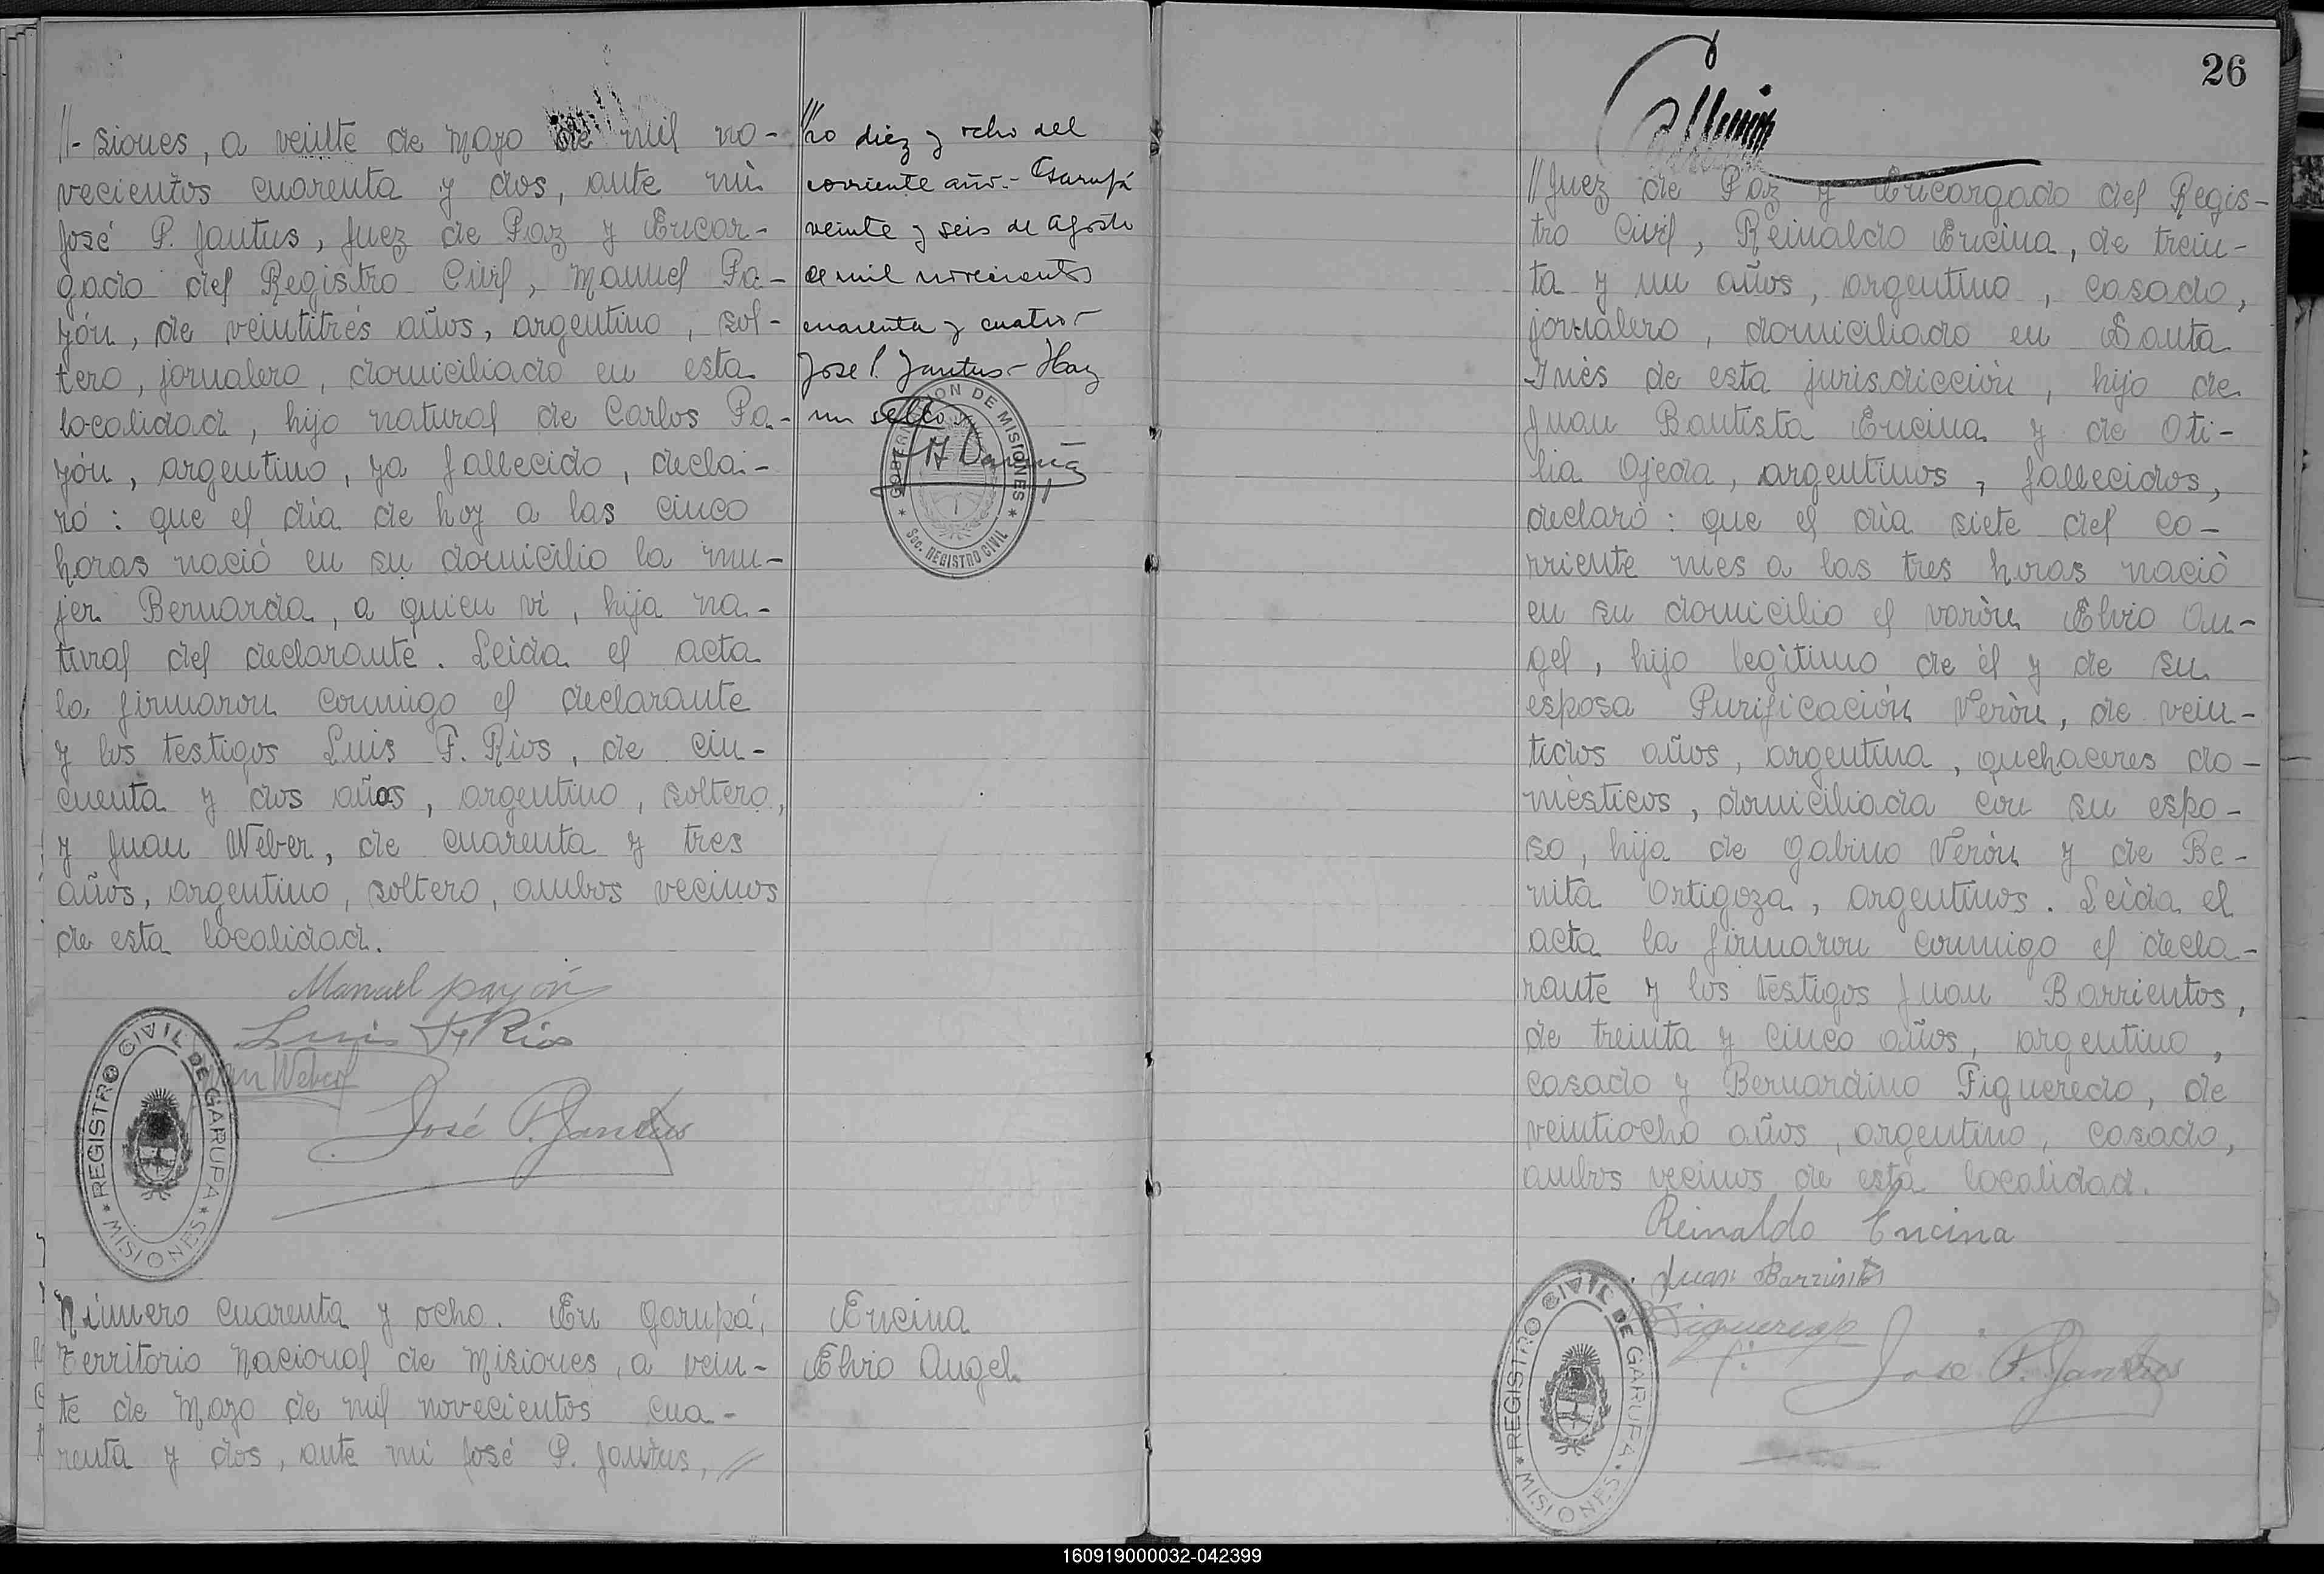 //- siones, a veinte de Mayo de mil no-
vecientos cuarenta y dos, ante mì
José P. Jantus, Juez de Paz y Encar-
gado del Registro Civil, Manuel Pa-
yón, de veintitrés años, argentino, sol-
tero, jornalero, domiciliado en esta
localidad, hijo natural de Carlos Pa-
yón, argentino, ya fallecido, decla-
ró: que el día de hoy a las cinco
horas nació en su domicilio la mu-
jer Bernarda, a quien vi, hija na-
tural del declarante. Leida el acta
la firmaron conmigo el declarante
y los testigos Luis F. Rios, de cin-
cuenta y dos años, argentino, soltero,
y Juan Weber, de cuarenta y tres
años, argentino, soltero, ambos vecinos
de esta localidad.
Manuel payón
Luis F. Rios
Weber
José P. Jantus
REGISTRO CIVIL DE GARUPA
* MISIONES *
Número cuarenta y ocho. En Garupá,
Territorio Nacional de Misiones, a vein-
te de Mayo de mil novecientos cua-
renta y dos, ante mí José P. Jantus, //
///no diez y ocho del
corriente año.- Garupá
veinte y seis de Agosto
de mil novecientos
cuarenta y cuatro-
Jose P. Jantus- Hay
un sello
GOBERNACION DE MISIONES
* Sec. REGISTRO CIVIL *
Encina
Elvio Angel.
26
//Juez de Paz y Encargado del Regis-
tro Civil, Reinaldo Encina, de trein-
ta y un años, argentino, casado,
jornalero, domiciliado en Santa
Inés de esta jurisdicción, hijo de
Juan Bautista Encina y de Oti-
lia Ojeda, argentinos, fallecidos,
declaró: que el dìa siete del co-
rriente mes a las tres horas naciò
en su domicilio el varòn Elvio An-
gel, hijo legìtimo de èl y de su
esposa Purificación Veròn, de vein-
tidos años, argentina, quehaceres do-
mèsticos, domiciliada con su espo-
so, hija de Gabino Veròn y de Be-
nita Ortigoza, argentinos. Leìda el
acta la firmaron conmigo el decla-
rante y los testigos Juan Barrientos,
de treinta y cinco años, argentino,
casado y Bernardino Figueredo, de
veintiocho años, argentino, casado,
ambos vecinos de esta localidad.
Reinaldo Encina
Juan Barrientos
José P. Jantus
REGISTRO CIVIL DE GARUPA
* MISIONES *
160919000032-042399